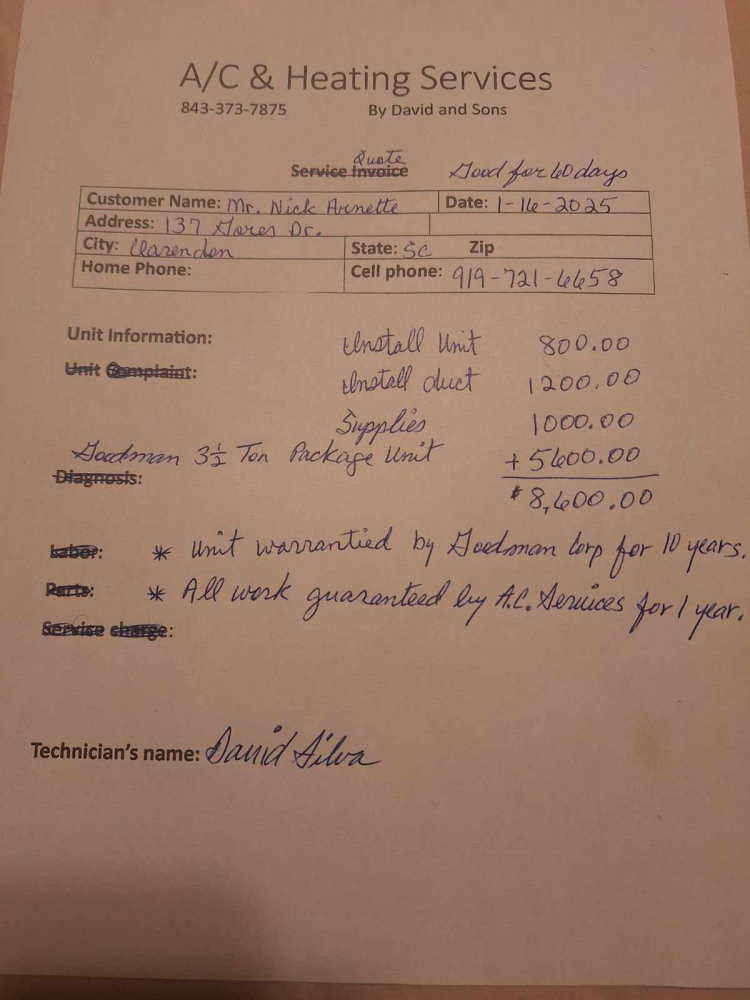 A/C & Heating Services
843-373-7875 By David and Sons
Quote
Service Invoice Good for 60 days
Customer Name: Mr. Nick Arnette Date: 1-16-2025
Address: 137 Dr.
City: Clarendon State: SC Zip
Home Phone: Cell phone: 919-721-6658
Unit Information: Install Unit 800.00
Unit Complaint: Install duct 1200.00
Supplies 1000.00
Goodman 3½ Ton Package Unit + 5600.00
Diagnosis: $8,600.00
Labor: * Unit warrantied by Goodman Corp for 10 years.
Parts: * All work guaranteed by A.C. Services for 1 year.
Service charge:
Technician's name: David Silva